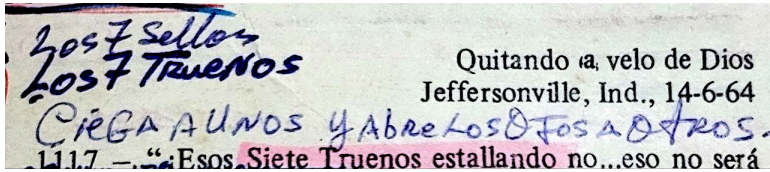 Los 7 Sellos
Los 7 TRueNos
Quitando a, velo de Dios
Jeffersonville, Ind., 14-6-64
CieGA A UNOS y AbRe Los OJOS A OtROS.
1117 – “¡Esos Siete Truenos estallando no...eso no será